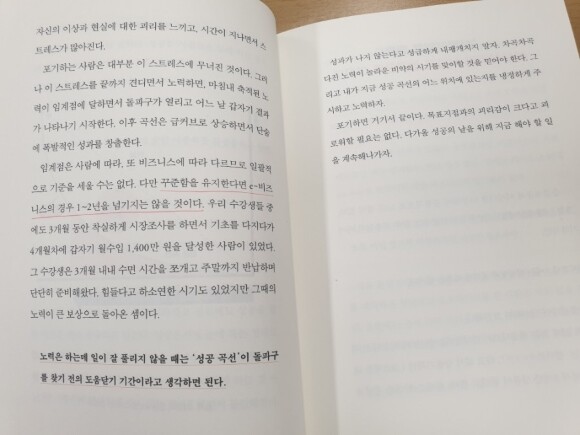 자신의 이상과 현실에 대한 괴리를 느끼고, 시간이 지나면서 스
트레스가 많아진다.
포기하는 사람은 대부분 이 스트레스에 무너진 것이다. 그러
나 이 스트레스를 끝까지 견디면서 노력하면, 마침내 축적된 노
력이 임계점에 달하면서 돌파구가 열리고 어느 날 갑자기 결과
가 나타나기 시작한다. 이후 곡선은 급커브로 상승하면서 단숨
에 폭발적인 성과를 창출한다.
임계점은 사람에 따라, 또 비즈니스에 따라 다르므로 일괄적
으로 기준을 세울 수는 없다. 다만 꾸준함을 유지한다면 e-비즈
니스의 경우 1~2년을 넘기지는 않을 것이다. 우리 수강생들 중
에도 3개월 동안 착실하게 시장조사를 하면서 기초를 다지다가
4개월차에 갑자기 월수입 1,400만 원을 달성한 사람이 있었다.
그 수강생은 3개월 내내 수면 시간을 쪼개고 주말까지 반납하며
단단히 준비해왔다. 힘들다고 하소연한 시기도 있었지만 그때의
노력이 큰 보상으로 돌아온 셈이다.
노력은 하는데 일이 잘 풀리지 않을 때는 '성공 곡선'이 돌파구
를 찾기 전의 도움닫기 기간이라고 생각하면 된다.
성과가 나지 않는다고 성급하게 내팽개치지 말자. 차곡차곡
다진 노력이 놀라운 비약의 시기를 맞이할 것을 믿어야 한다. 그
리고 내가 지금 성공 곡선의 어느 위치에 있는지를 냉정하게 주
시하고 노력하자.
포기하면 거기서 끝이다. 목표지점과의 괴리감이 크다고 괴
로워할 필요는 없다. 다가올 성공의 날을 위해 지금 해야 할 일
을 계속해나가자.